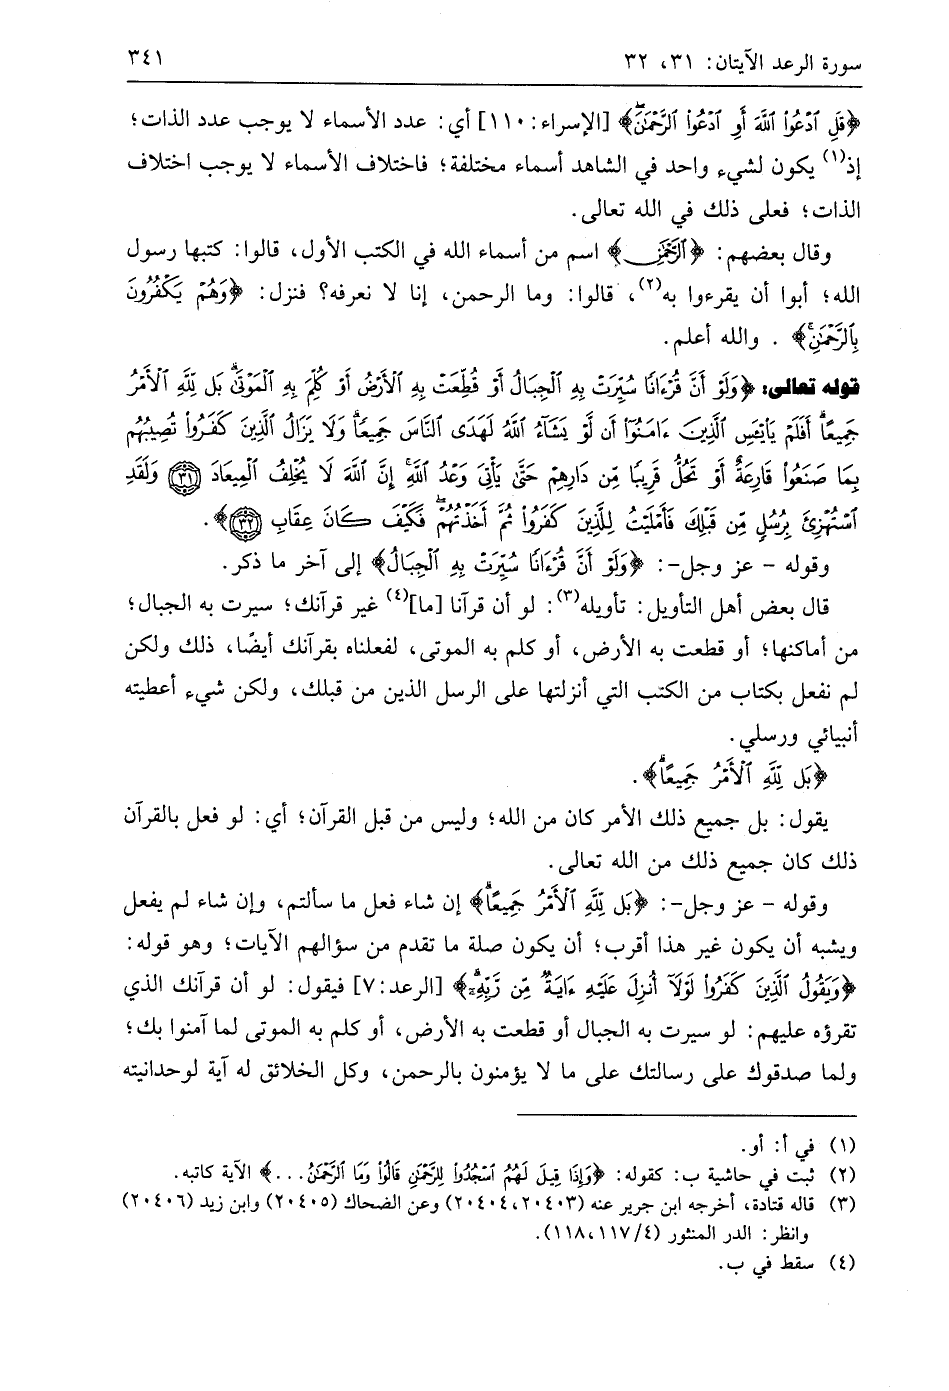 سورة الرعد الآيتان: ٣١، ٣٢
٣٤١
﴿قُلِ ٱدْعُوا۟ ٱللَّهَ أَوِ ٱدْعُوا۟ ٱلرَّحْمَٰنَۖ﴾ [الإسراء: ١١٠] أي: عدد الأسماء لا يوجب عدد الذات؛
إذ(١) يكون لشيء واحد في الشاهد أسماء مختلفة؛ فاختلاف الأسماء لا يوجب اختلاف
الذات؛ فعلى ذلك في الله تعالى.
وقال بعضهم: ﴿ٱلرَّحْمَٰنِ﴾ اسم من أسماء الله في الكتب الأول، قالوا: كتبها رسول
الله؛ أبوا أن يقرءوا به(٢)، قالوا: وما الرحمن، إنا لا نعرفه؟ فنزل: ﴿وَهُمْ يَكْفُرُونَ
بِٱلرَّحْمَٰنِۚ﴾ . والله أعلم.
قوله تعالى: ﴿وَلَوْ أَنَّ قُرْءَانًا سُيِّرَتْ بِهِ ٱلْجِبَالُ أَوْ قُطِّعَتْ بِهِ ٱلْأَرْضُ أَوْ كُلِّمَ بِهِ ٱلْمَوْتَىٰۗ بَل لِّلَّهِ ٱلْأَمْرُ
جَمِيعًاۗ أَفَلَمْ يَا۟يْـَٔسِ ٱلَّذِينَ ءَامَنُوٓا۟ أَن لَّوْ يَشَآءُ ٱللَّهُ لَهَدَى ٱلنَّاسَ جَمِيعًاۗ وَلَا يَزَالُ ٱلَّذِينَ كَفَرُوا۟ تُصِيبُهُم
بِمَا صَنَعُوا۟ قَارِعَةٌ أَوْ تَحُلُّ قَرِيبًا مِّن دَارِهِمْ حَتَّىٰ يَأْتِىَ وَعْدُ ٱللَّهِۚ إِنَّ ٱللَّهَ لَا يُخْلِفُ ٱلْمِيعَادَ ۝٣١ وَلَقَدِ
ٱسْتُهْزِئَ بِرُسُلٍ مِّن قَبْلِكَ فَأَمْلَيْتُ لِلَّذِينَ كَفَرُوا۟ ثُمَّ أَخَذْتُهُمْۖ فَكَيْفَ كَانَ عِقَابِ ۝٣٢﴾.
وقوله - عز وجل-: ﴿وَلَوْ أَنَّ قُرْءَانًا سُيِّرَتْ بِهِ ٱلْجِبَالُ﴾ إلى آخر ما ذكر.
قال بعض أهل التأويل: تأويله(٣): لو أن قرآنا [ما](٤) غير قرآنك؛ سيرت به الجبال؛
من أماكنها؛ أو قطعت به الأرض، أو كلم به الموتى، لفعلناه بقرآنك أيضًا، ذلك ولكن
لم نفعل بكتاب من الكتب التي أنزلتها على الرسل الذين من قبلك، ولكن شيء أعطيته
أنبيائي ورسلي.
﴿بَل لِّلَّهِ ٱلْأَمْرُ جَمِيعًاۗ﴾.
يقول: بل جميع ذلك الأمر كان من الله؛ وليس من قبل القرآن؛ أي: لو فعل بالقرآن
ذلك كان جميع ذلك من الله تعالى.
وقوله - عز وجل-: ﴿بَل لِّلَّهِ ٱلْأَمْرُ جَمِيعًاۗ﴾ إن شاء فعل ما سألتم، وإن شاء لم يفعل
ويشبه أن يكون غير هذا أقرب؛ أن يكون صلة ما تقدم من سؤالهم الآيات؛ وهو قوله:
﴿وَيَقُولُ ٱلَّذِينَ كَفَرُوا۟ لَوْلَآ أُنزِلَ عَلَيْهِ ءَايَةٌ مِّن رَّبِّهِۦۗ﴾ [الرعد: ٧] فيقول: لو أن قرآنك الذي
تقرؤه عليهم: لو سيرت به الجبال أو قطعت به الأرض، أو كلم به الموتى لما آمنوا بك؛
ولما صدقوك على رسالتك على ما لا يؤمنون بالرحمن، وكل الخلائق له آية لوحدانيته
(١) في أ: أو.
(٢) ثبت في حاشية ب: كقوله: ﴿وَإِذَا قِيلَ لَهُمُ ٱسْجُدُوا۟ لِلرَّحْمَٰنِ قَالُوا۟ وَمَا ٱلرَّحْمَٰنُ...﴾ الآية كاتبه.
(٣) قاله قتادة، أخرجه ابن جرير عنه (٢٠٤٠٣، ٢٠٤٠٤) وعن الضحاك (٢٠٤٠٥) وابن زيد (٢٠٤٠٦)
وانظر: الدر المنثور (٤/ ١١٧، ١١٨).
(٤) سقط في ب.